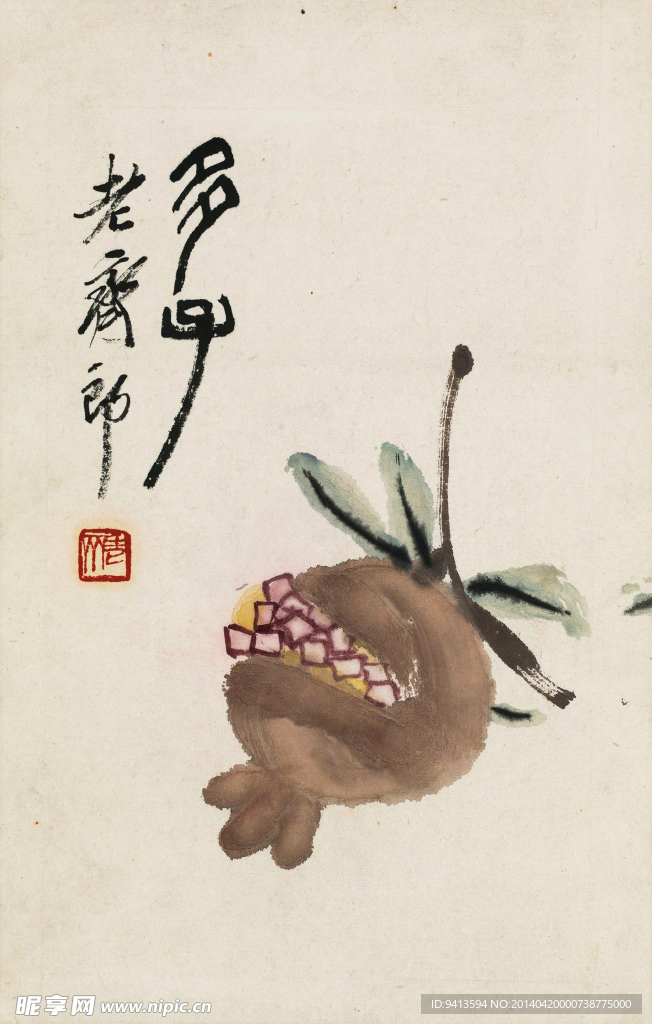 多子
老齊郎
昵享网 www.nipic.cn
ID:9413594 NO:20140420000738775000